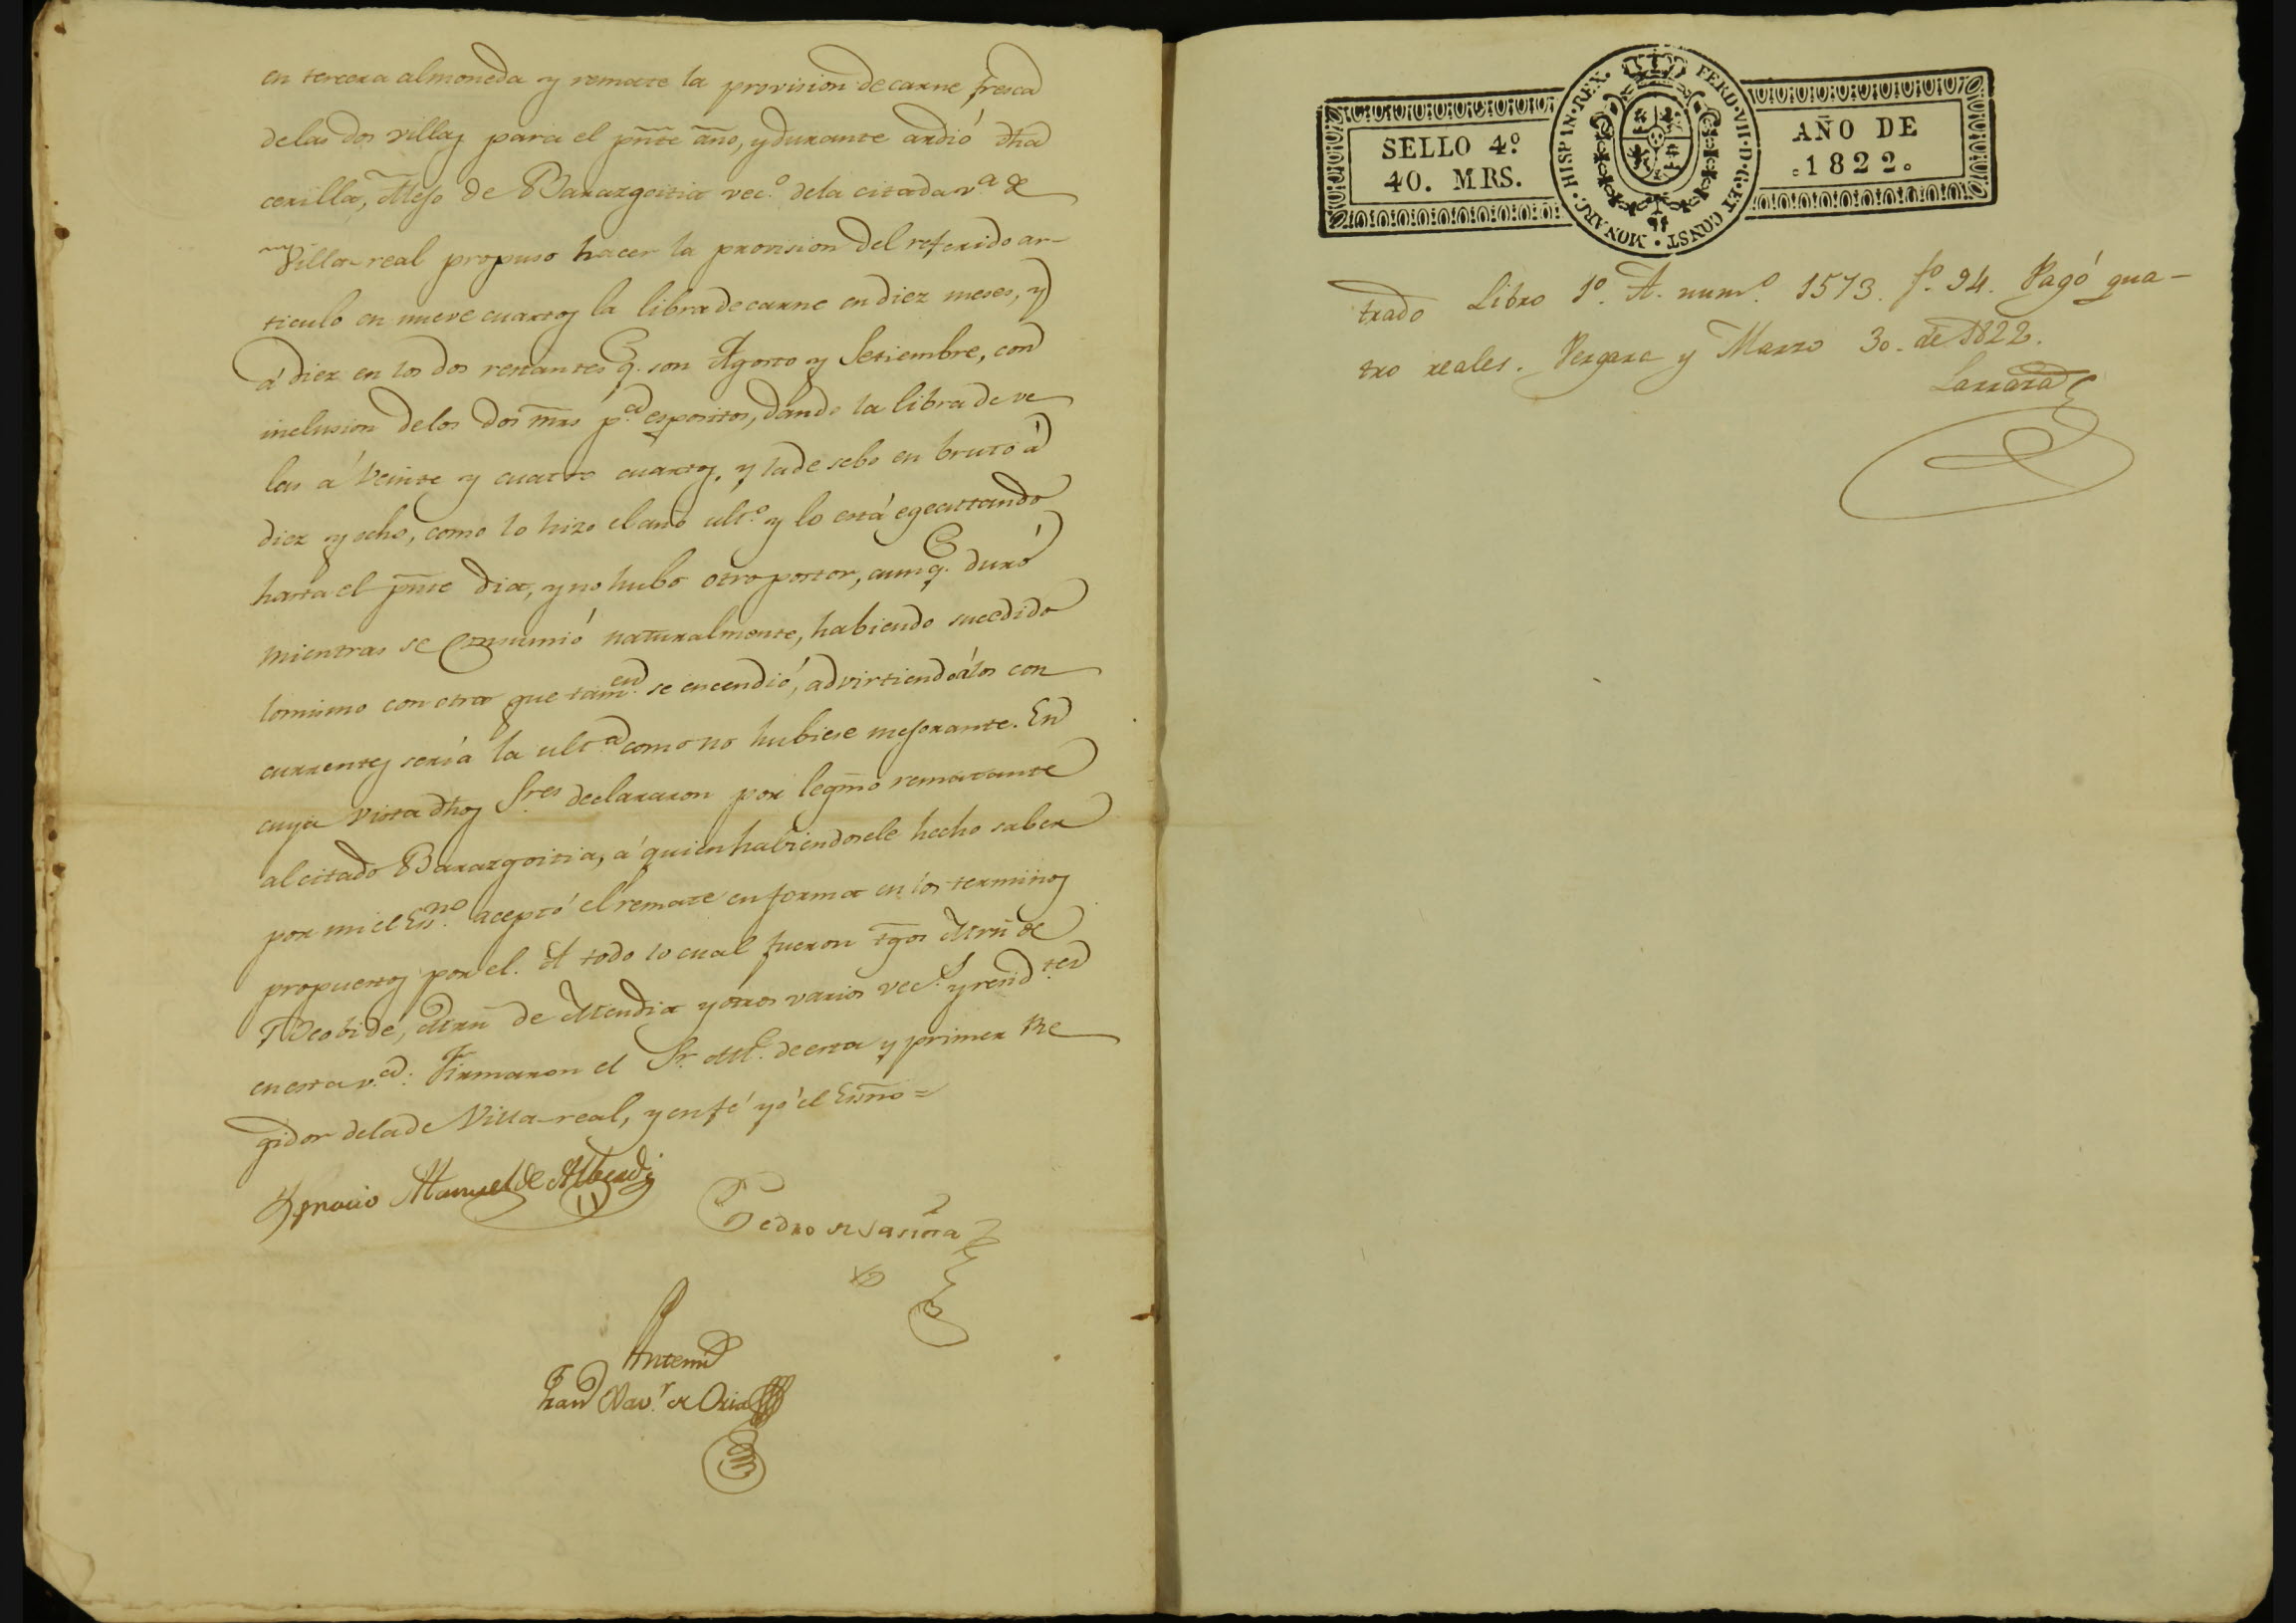 en tercera almoneda y remate la provision de carne fresca
de las dos villas para el pñte año, y durante ardió dha
cerilla, Alejo de Barazgoitia vec.º de la citada v.ª de
Villa-real propuso hacer la provision del referido ar-
ticulo en nueve cuartos la libra de carne en diez meses, y
á diez en los dos restantes q. son Agosto y Setiembre, con
inclusion de los dos mrs p.ª espositos, dando la libra de ve
las á veinte y cuatro cuartos, y la de sebo en bruto á
diez y ocho, como lo hizo el año ult.º y lo está egecutando
hasta el pñte dia, y no hubo otro postor, aunq. duró
mientras se consumió naturalmente, habiendo sucedido
lo mismo con otra que tam.en se encendió, advirtiendo á los con
currentes sería la ult.ª como no hubiese mejorante. En
cuya vista dhos S.res declararon por legmo rematante
al citado Barazgoitia, á quien habiendosele hecho saber
por mi el Es.no aceptó el remate en forma en los terminos
propuestos por el. A todo lo cual fueron tgos Mrn de
de Mendia y otros varios vec.s y resid.tes
en esta v.ª: Firmaron el S.r Alc.e de esta y primer Re
gidor de la de Villa-real, y en fé yo el Esno=
Ignacio Manuel de Alberdi
Pedro de
Antemi
Juan Nav.r de Oria
SELLO 4º
40. MRS.
HISPAN·REX· FERD·VII·D·G·ET CONST·MONARC·
AÑO DE
1822
trado Libro 1º. A. num.º 1573. fº. 94. Pagó qua-
tro reales. Vergara y Marzo 30. de 1822.